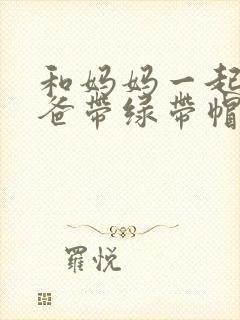 和妈妈一起
爸带绿带帽
羅悦